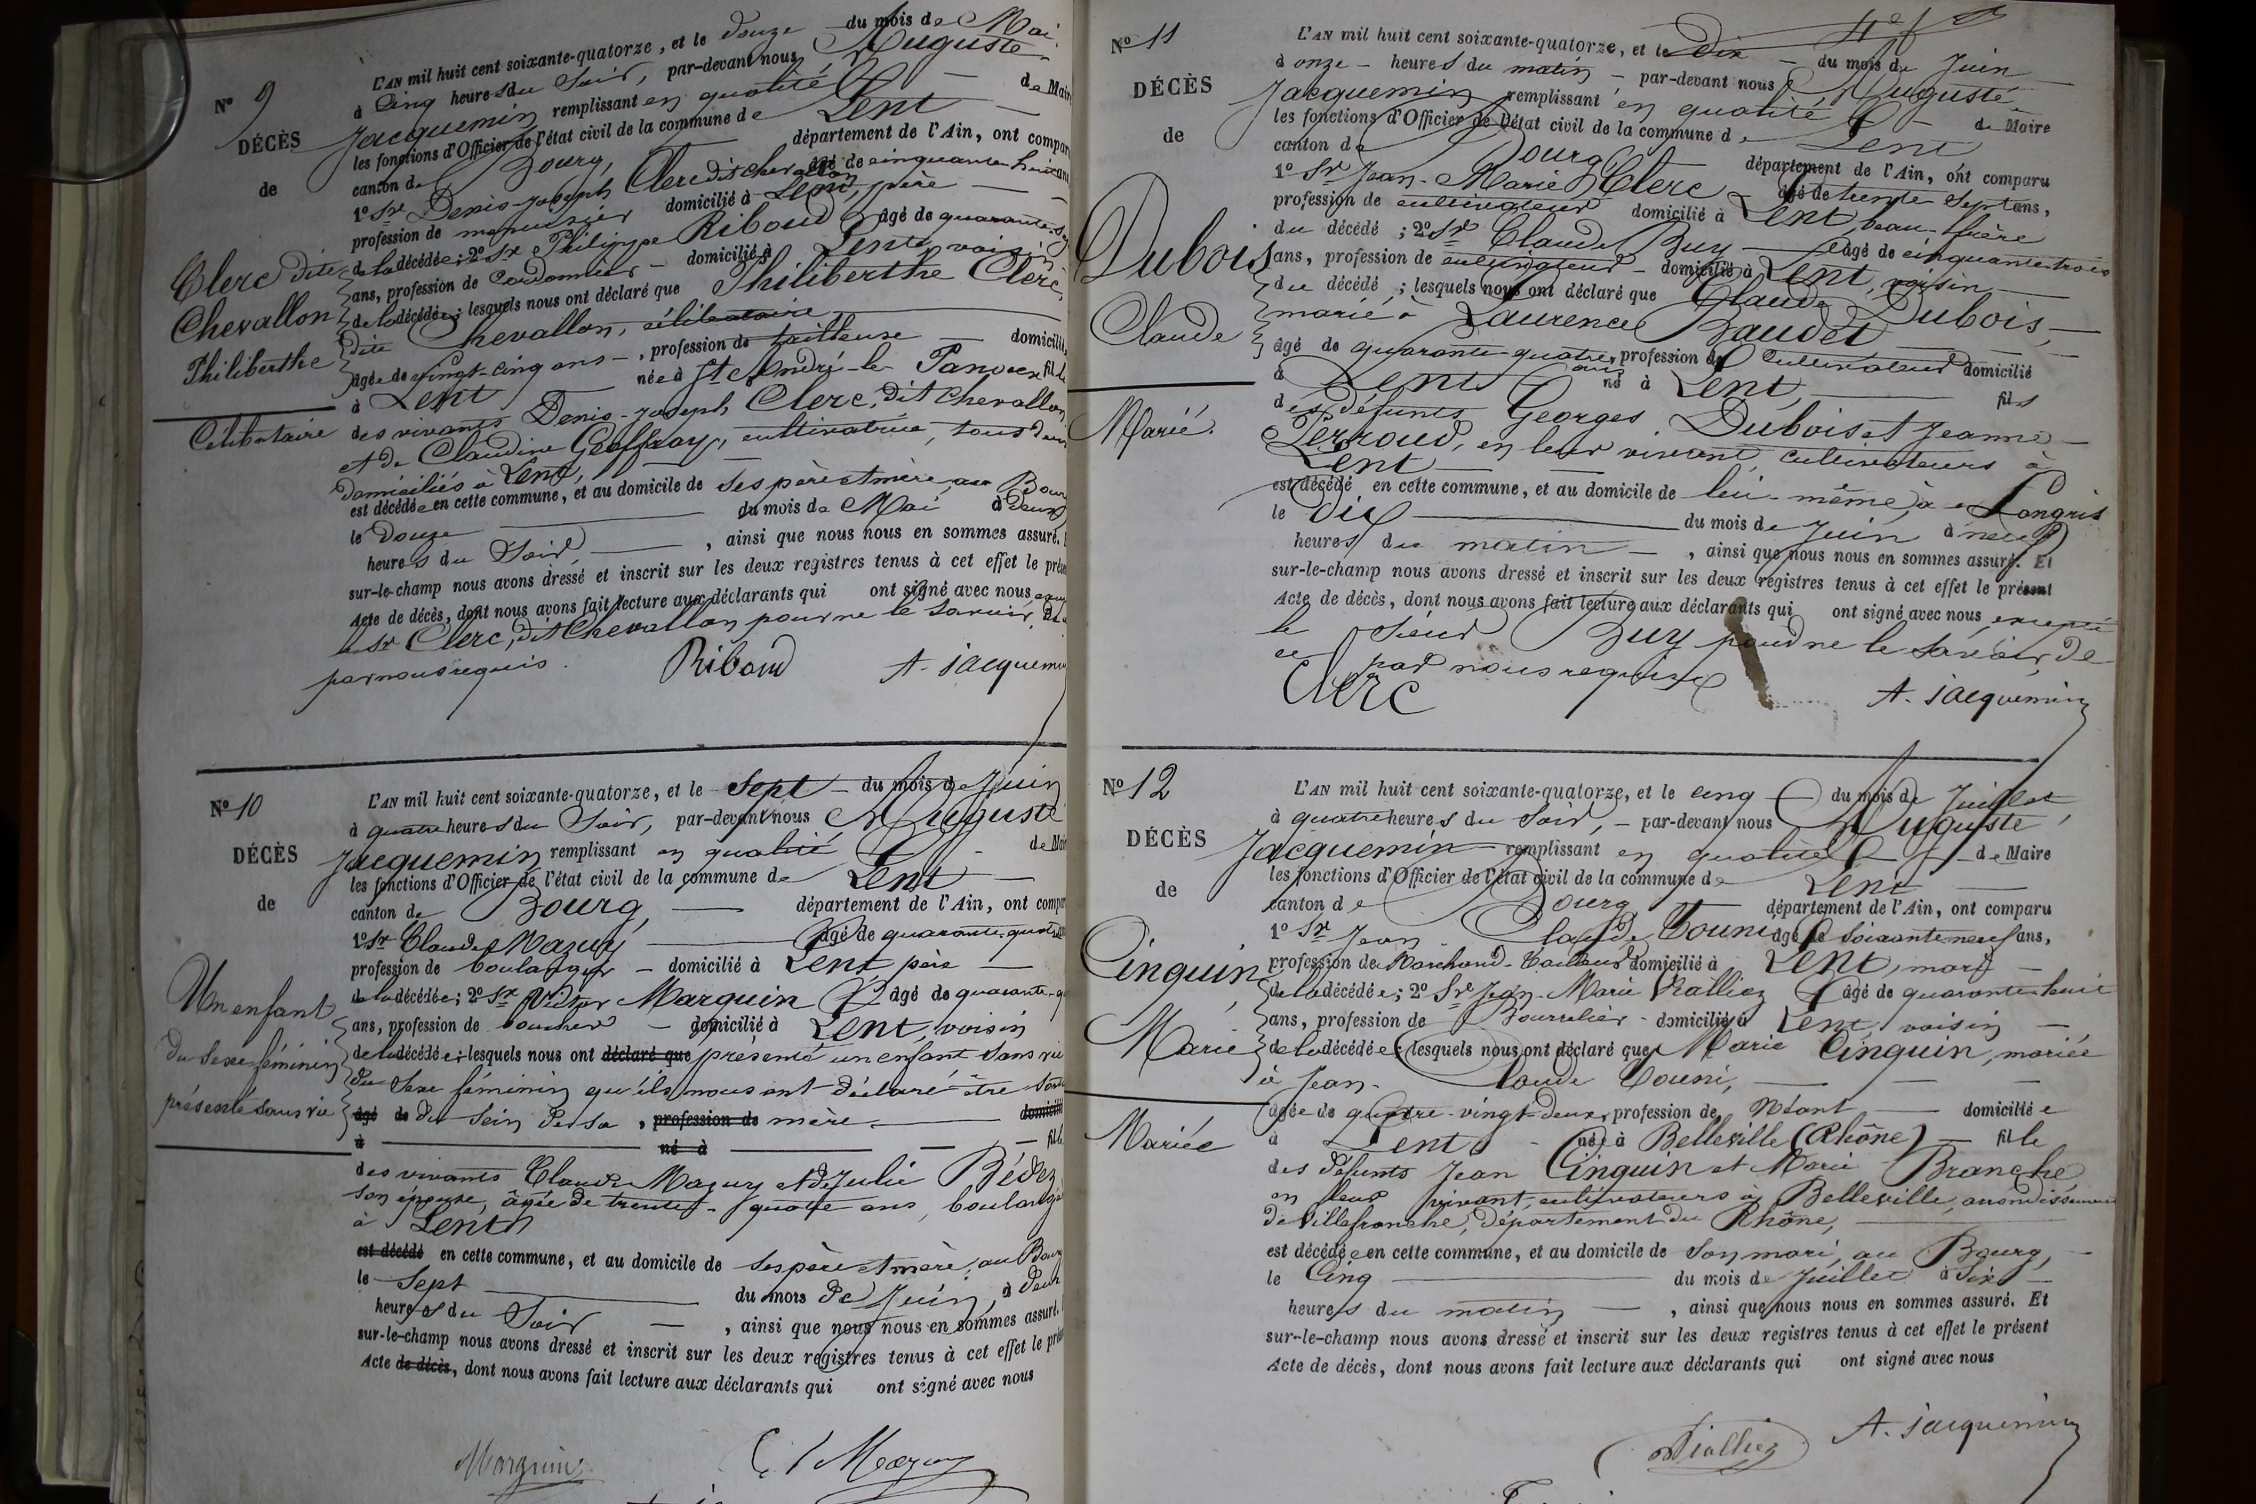 N° 9
DÉCÈS
de
Clerc dite
Chevallon
Philiberthe
Célibataire
L'AN mil huit cent soixante-quatorze, et le douze du mois de Mai
à Cinq heures du Soir, par-devant nous Auguste
Jacquemin remplissant en qualité de Maire
les fonctions d'Officier de l'état civil de la commune de Lent
canton de Bourg, département de l'Ain, ont compar
1° Sr Denis-Joseph Clerc dit Chevallon âgé de cinquante huit ans
profession de menuisier domicilié à Lent, père
de la décédée; 2° Sr Philippe Riboud âgé de quarante
ans, profession de Cordonnier domicilié à Lent, voisin
de la décédée; lesquels nous ont déclaré que Philiberthe Clerc,
dite Chevallon, célibataire
âgée de vingt-cinq ans, profession de tailleuse domicilié
à Lent née à St André-le-Panoux fille
des vivants Denis-Joseph Clerc, dit Chevallon,
et de Claudine Geoffray, cultivatrice, tous deux
domiciliés à Lent,
est décédée en cette commune, et au domicile de ses père et mère, au Bourg
le douze du mois de Mai à deux
heures du Soir, ainsi que nous nous en sommes assuré.
sur-le-champ nous avons dressé et inscrit sur les deux registres tenus à cet effet le prése
Acte de décès, dont nous avons fait lecture aux déclarants qui ont signé avec nous
le Sr Clerc, dit Chevallon pour ne le savoir, de
par nous requis.
Riboud A. Jacquemin
N° 10
DÉCÈS
de
Un enfant
du Sexe féminin
présenté sans vie
L'AN mil huit cent soixante-quatorze, et le Sept du mois de Juin
à quatre heures du Soir, par-devant nous Auguste
Jacquemin remplissant en qualité de Mair
les fonctions d'Officier de l'état civil de la commune de Lent
canton de Bourg, département de l'Ain, ont compar
1° Sr Claude Mazuy âgé de quarante-quatre
profession de boulanger domicilié à Lent, père
de la décédée; 2° Sr Victor Marguin âgé de quarante
ans, profession de boucher domicilié à Lent, voisin
de la décédée; lesquels nous ont déclaré que présenté un enfant sans vie
du Sexe féminin qu'ils nous ont déclaré être sorti
âgé de du sein de sa, profession de mère. domicilié
à né à fille
des vivants Claude Mazuy et de Julie
son épouse, âgée de trente-quatre ans, boulangé
à Lent
est décédé en cette commune, et au domicile de ses père et mère, au Bourg
le Sept du mois de Juin, à deux
heures du Soir, ainsi que nous nous en sommes assuré.
sur-le-champ nous avons dressé et inscrit sur les deux registres tenus à cet effet le prése
Acte de décès, dont nous avons fait lecture aux déclarants qui ont signé avec nous
Marguin Cl Mazuy
N° 11
DÉCÈS
de
Dubois
Claude
Marié.
L'AN mil huit cent soixante-quatorze, et le Dix du mois de Juin
à onze heures du matin par-devant nous Auguste
Jacquemin remplissant en qualité de Maire
les fonctions d'Officier de l'état civil de la commune de Lent
canton de Bourg département de l'Ain, ont comparu
1° Sr Jean-Marie Clerc âgé de trente Sept ans,
profession de cultivateur domicilié à Lent, beau-frère
du décédé; 2° Sr Claude Buy âgé de cinquante trois
ans, profession de cultivateur domicilié à Lent, voisin
du décédé; lesquels nous ont déclaré que Claude Dubois,
marié à Laurence Baudet
âgé de quarante-quatre ans, profession de Cultivateur domicilié
à Lent né à Lent fils
des défunts Georges Dubois et Jeanne
Perroud, en leur vivant cultivateurs à
Lent
est décédé en cette commune, et au domicile de lui-même, à Longris
le dix du mois de Juin à neuf
heures du matin, ainsi que nous nous en sommes assuré. Et
sur-le-champ nous avons dressé et inscrit sur les deux registres tenus à cet effet le présent
Acte de décès, dont nous avons fait lecture aux déclarants qui ont signé avec nous, excepté
le Sieur Buy pour ne le savoir, de
ce par nous requis
Clerc A. Jacquemin
N° 12
DÉCÈS
de
Cinquin
Marie
Mariée
L'AN mil huit cent soixante-quatorze, et le cinq du mois de Juillet,
à quatre heures du Soir, par-devant nous Auguste
Jacquemin remplissant en qualité de Maire
les fonctions d'Officier de l'état civil de la commune de Lent
canton de Bourg département de l'Ain, ont comparu
1° Sr Jean Claude Touni âgé de soixante neuf ans,
profession de Marchand-Tailleur domicilié à Lent, mari
de la décédée; 2° Sr Jean-Marie Vialliez âgé de quarante huit
ans, profession de Bourrelier domicilié à Lent, voisin
de la décédée; lesquels nous ont déclaré que Marie Cinquin, mariée
à Jean-Claude Touni,
âgée de quatre-vingt-deux, profession de Néant domiciliée
à Lent née à Belleville (Rhône) fille
des défunts Jean Cinquin et Marie Branche
en leur vivant, cultivateurs à Belleville, arrondissement
de Villefranche, département du Rhône,
est décédée en cette commune, et au domicile de son mari, au Bourg,
le Cinq du mois de Juillet à Six
heures du matin, ainsi que nous nous en sommes assuré. Et
sur-le-champ nous avons dressé et inscrit sur les deux registres tenus à cet effet le présent
Acte de décès, dont nous avons fait lecture aux déclarants qui ont signé avec nous
Vialliez A. Jacquemin